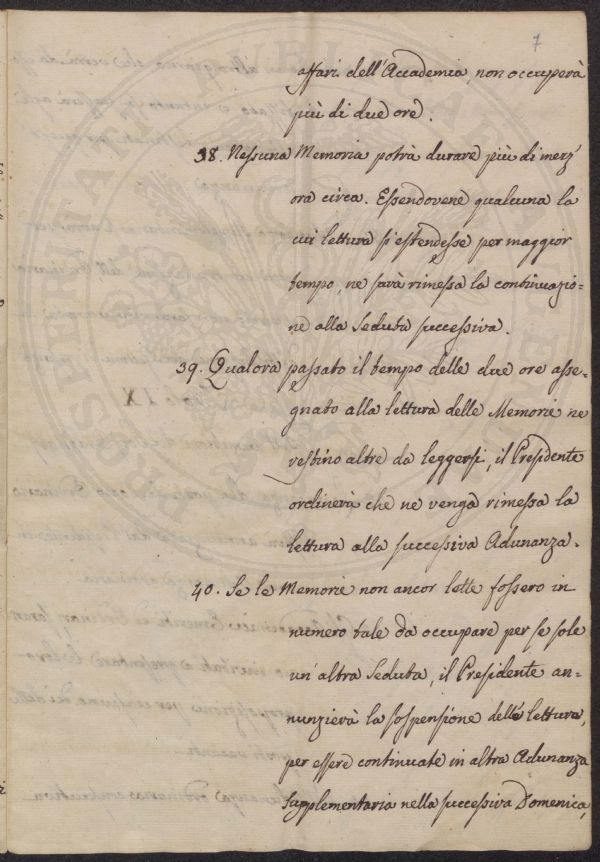 7
affari dell'Accademia non occuperà
più di due ore.
38. Nessuna Memoria potrà durare più di mezz'
ora circa. Essendovene qualcuna la
cui lettura si estendesse per maggior
tempo, ne sarà rimessa la continuazio=
ne alla Seduta successiva.
39. Qualora passato il tempo delle due ore asse=
gnato alla lettura delle Memorie ne
restino altre da leggersi, il Presidente
ordinerà che ne venga rimessa la
lettura alla successiva Adunanza.
40. Se le Memorie non ancor lette fossero in
numero tale da occupare per se sole
un'altra Seduta, il Presidente an=
nunzierà la sospensione delle lettura,
per essere continuate in altra Adunanza
Supplementaria nella successiva Domenica,